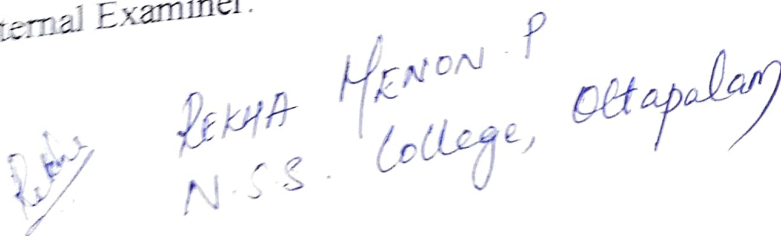 ternal Examiner.
REKHA MENON. P
Rekha N.S.S. College, Ottapalam